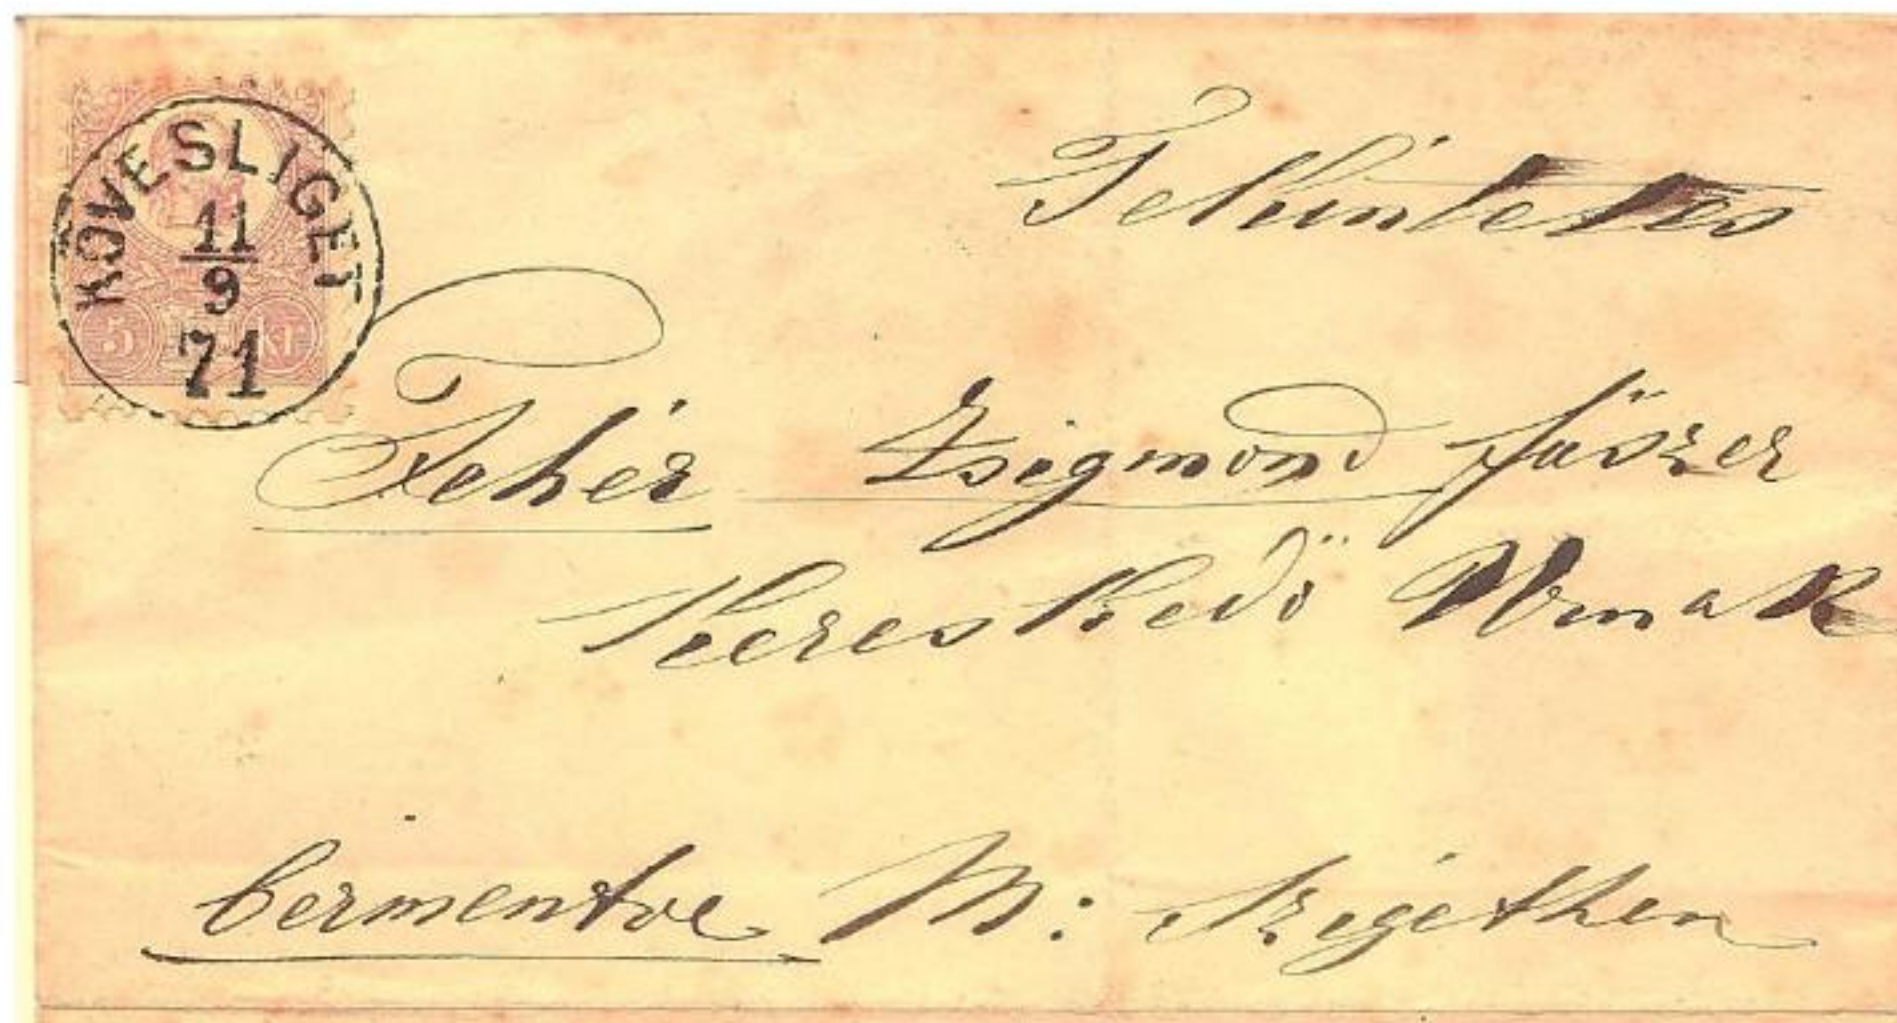 KÖVESLIGET
11
9
71
5 KR
Tekintetes
Fehér Zsigmond füszer
kereskedö Urnak
bermentve M: Szigethen